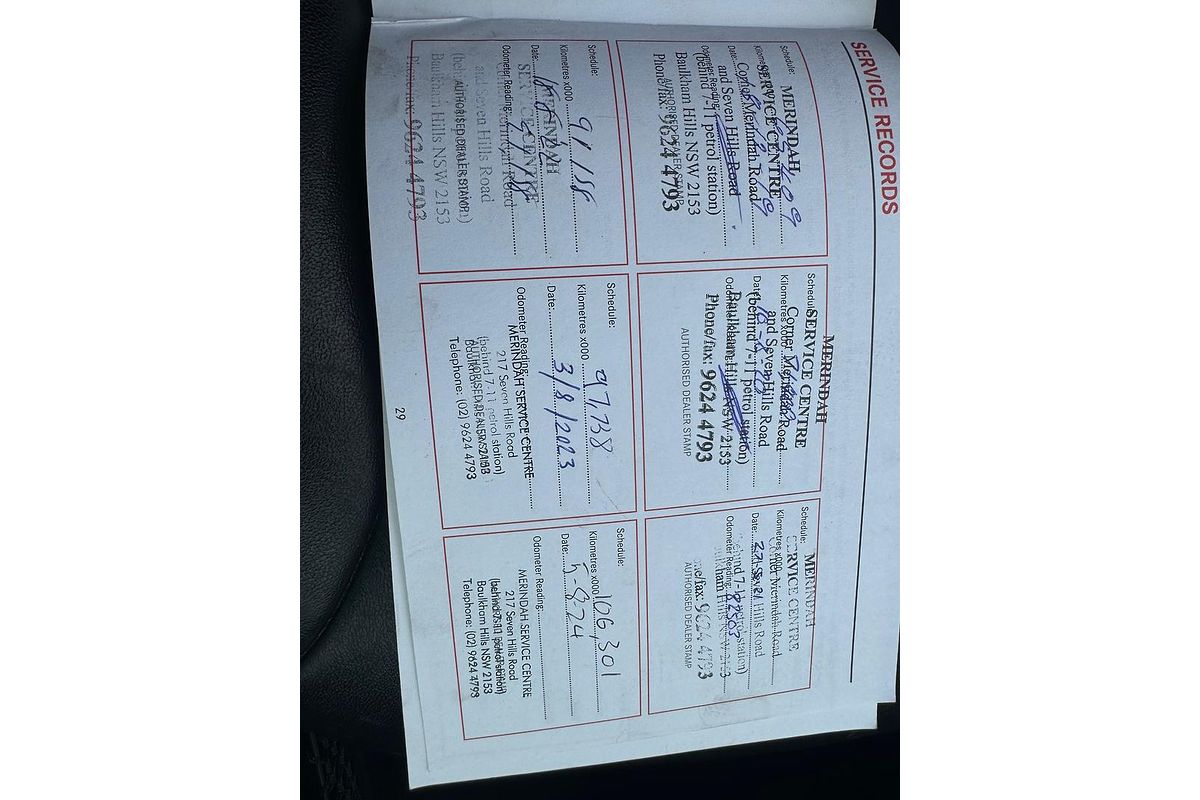 SERVICE RECORDS
Schedule:
MERINDAH
Kilometres x000
SERVICE CENTRE
Corner Merindah Road
Date:
and Seven Hills Road
Odometer Reading:
(behind 7-11 petrol station)
Baulkham Hills NSW 2153
AUTHORISED DEALER STAMP
Phone/fax: 9624 4793
MERINDAH
Schedule:
SERVICE CENTRE
Kilometres x000
Corner Merindah Road
and Seven Hills Road
Date:
(behind 7-11 petrol station)
Odometer Reading:
Baulkham Hills NSW 2153
Phone/fax: 9624 4793
AUTHORISED DEALER STAMP
Schedule:
MERINDAH
SERVICE CENTRE
Kilometres x000
Corner Merindah Road
Date:
Hills Road
Odometer Reading:
7-11 petrol station)
Hills NSW 2153
9624 4793
AUTHORISED DEALER STAMP
Schedule:
Kilometres x000
MERINDAH
Date:
SERVICE CENTRE
Odometer Reading:
and Seven Hills Road
AUTHORISED DEALER STAMP
Baulkham Hills NSW 2153
Phone/fax: 9624 4793
Schedule:
Kilometres x000 97,738
Date: 3/8/2023
Odometer Reading:
MERINDAH SERVICE CENTRE
217 Seven Hills Road
(behind 7-11 petrol station)
AUTHORISED DEALER STAMP
Baulkham Hills NSW 2153
Telephone: (02) 9624 4793
Schedule:
Kilometres x000 106,301
Date: 5-8-24
Odometer Reading:
MERINDAH SERVICE CENTRE
217 Seven Hills Road
(behind 7-11 petrol station)
Baulkham Hills NSW 2153
Telephone: (02) 9624 4793
29